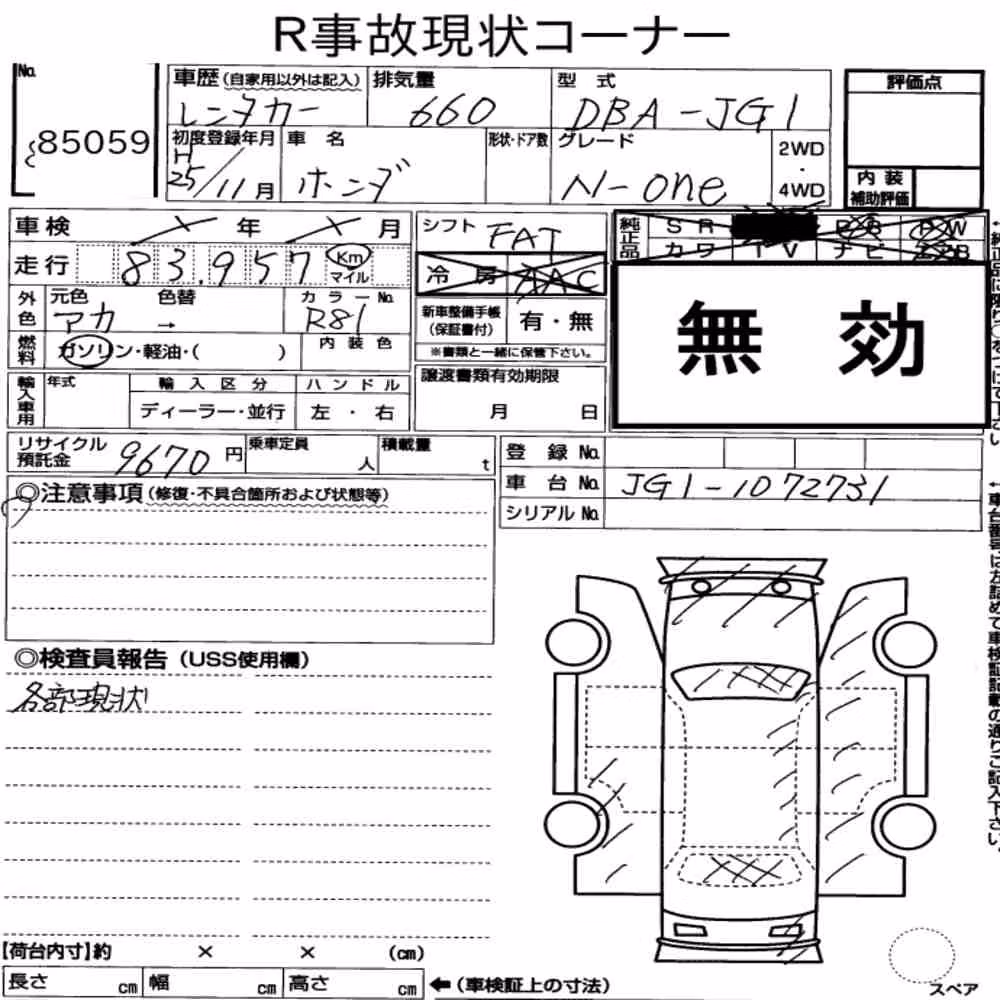 R事故現状コーナー
No.
85059
車歴 (自家用以外は記入)
レンタカー
排気量
660
型 式
DBA-JG1
評価点
初度登録年月
H
25/11月
車 名
ホンダ
形状・ドア数
グレード
N-one
2WD
・
4WD
内装
補助評価
車検 × 年 × 月
シフト FAT
純正品
SR
PW
カワ TV ナビ
走行 83,957 Km
マイル
冷房 AAC
無 効
外色
元色 色替
アカ →
カラーNo.
R81
新車整備手帳
(保証書付)
有・無
※書類と一緒に保管下さい。
燃料
ガソリン・軽油・( )
内装色
輸入車用
年式
輸入区分
ディーラー・並行
ハンドル
左・右
譲渡書類有効期限
月 日
リサイクル
預託金
9670円
乗車定員
人
積載量
t
登 録 No.
車 台 No. JG1-1072731
シリアル No.
◎注意事項 (修復・不具合箇所および状態等)
←車台番号は左詰めで車検証記載の通りご記入下さい。
◎検査員報告 (USS使用欄)
各部現状
【荷台内寸】約 × × (cm)
長さ cm 幅 cm 高さ cm
←(車検証上の寸法)
スペア